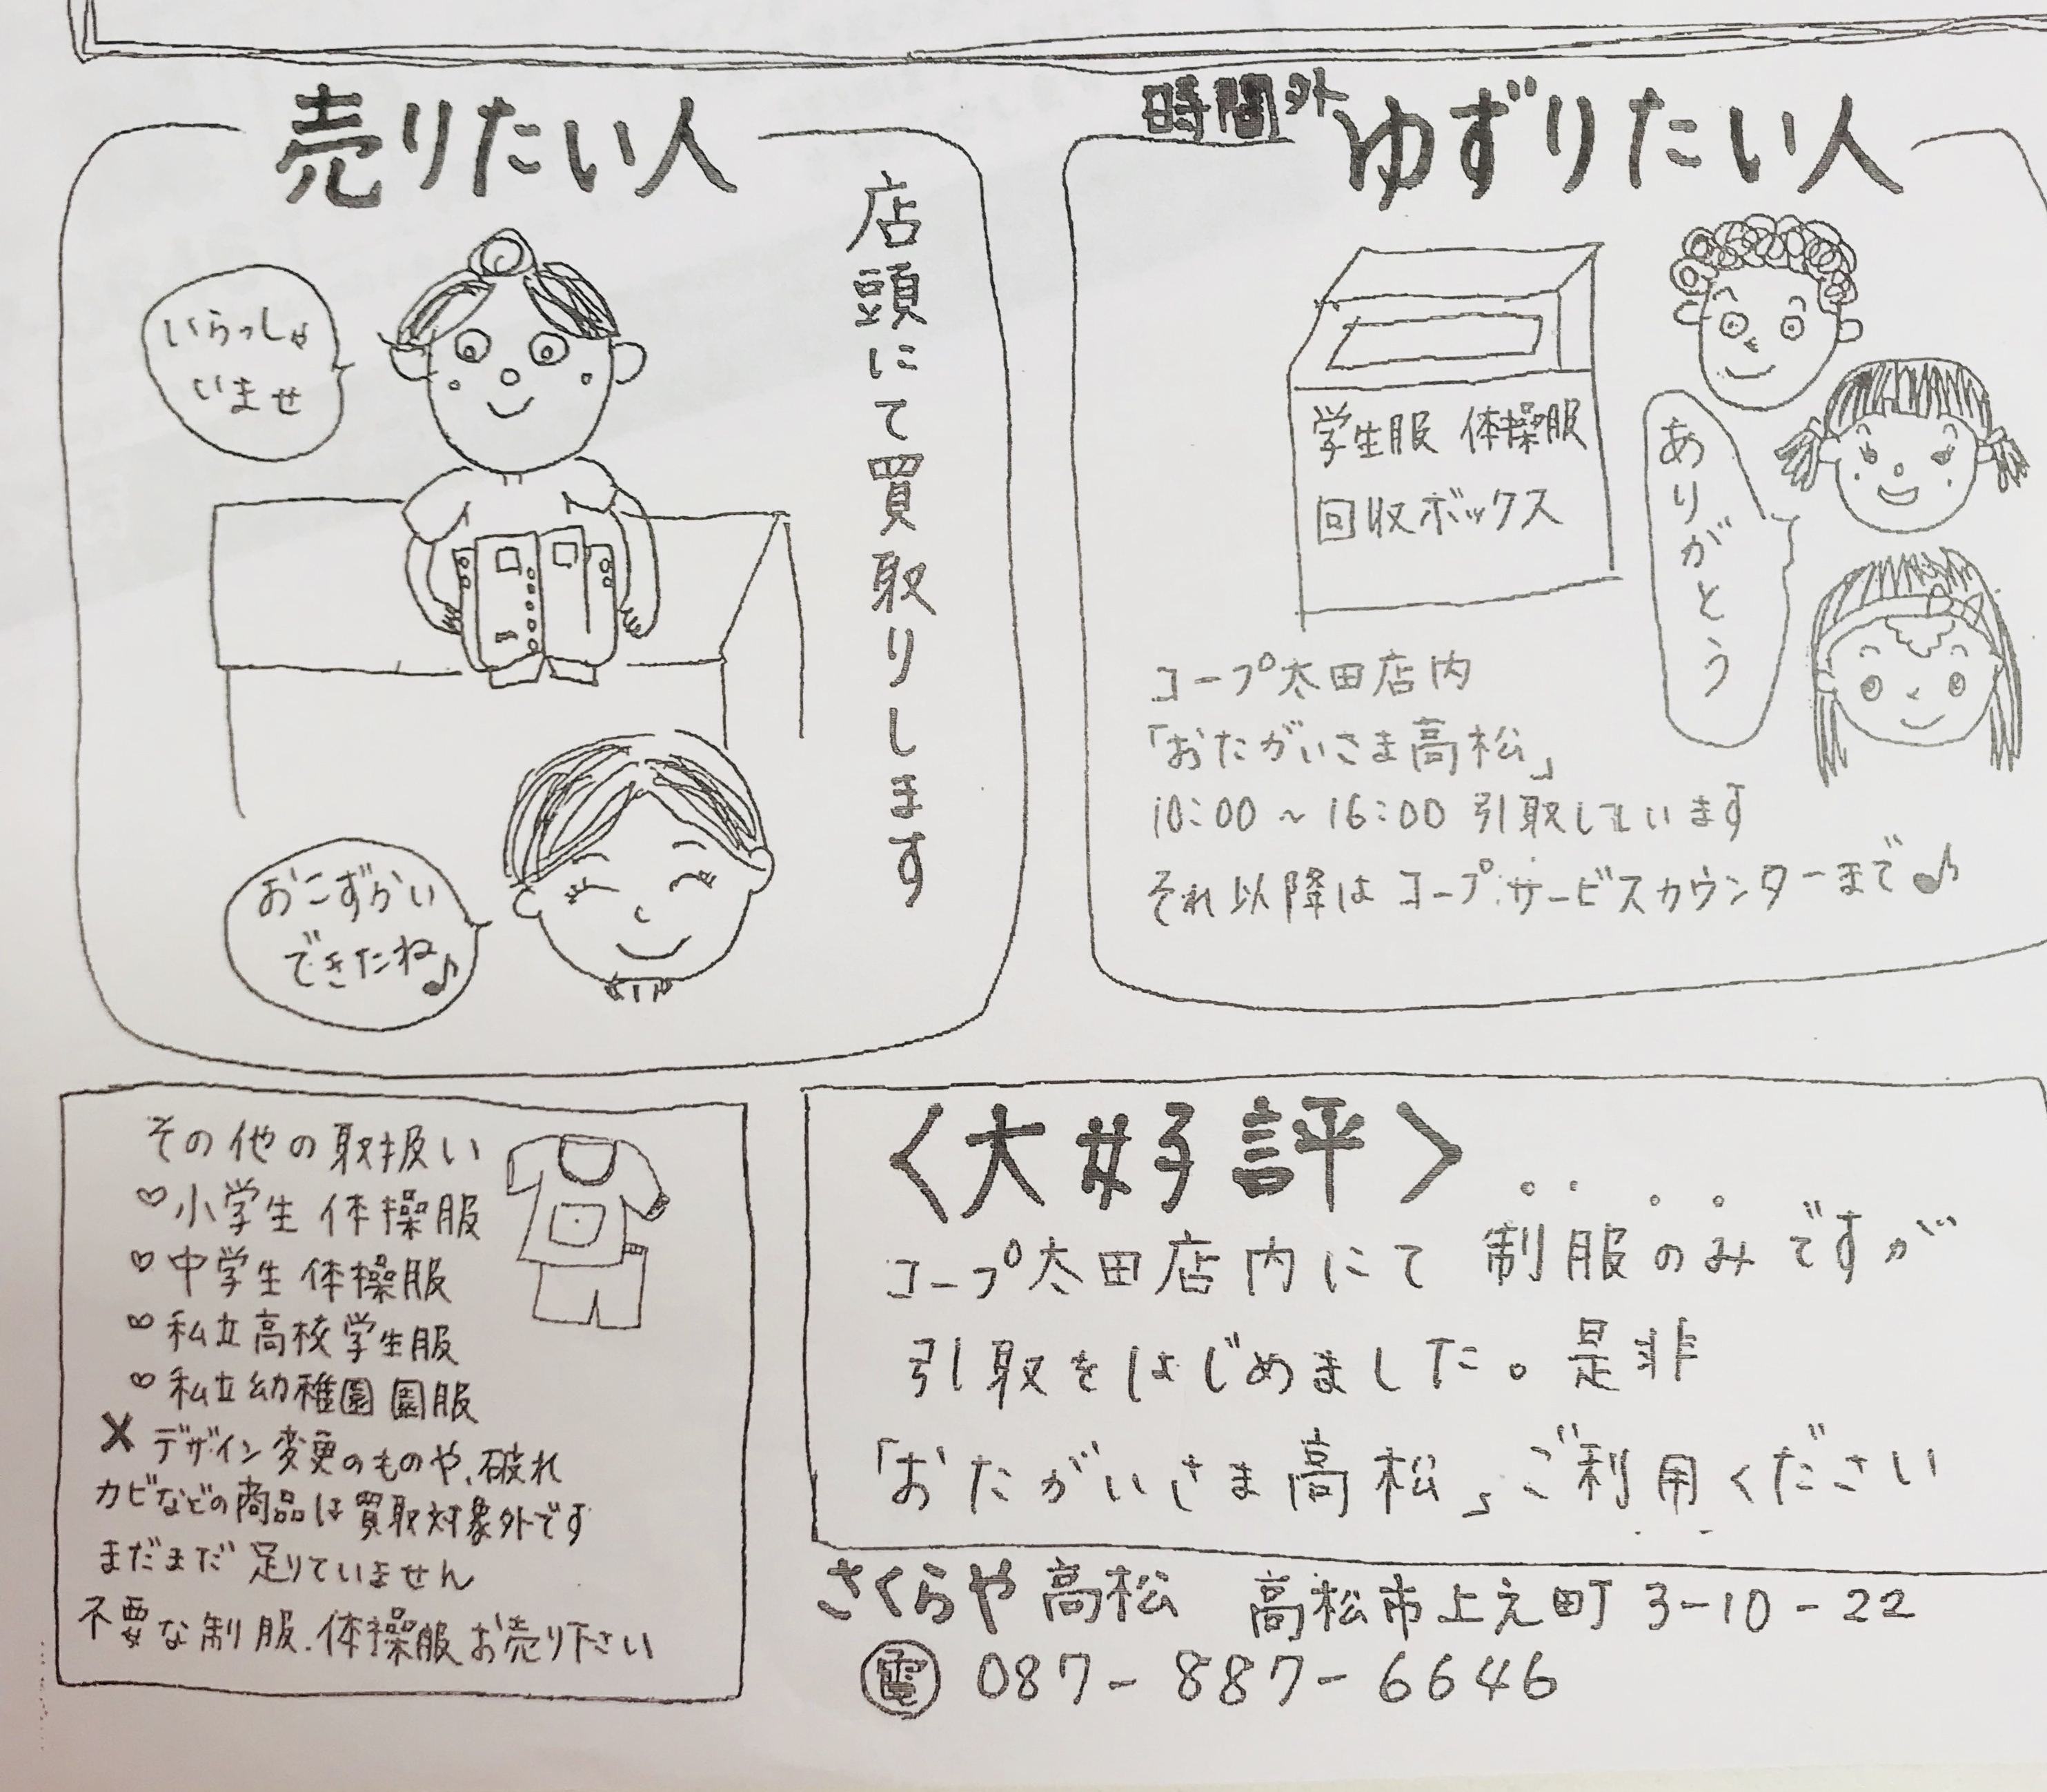 売りたい人
店頭にて買取りします
いらっしゃ
いませ
おこずかい
できたね♪
時間外ゆずりたい人
学生服 体操服
回収ボックス
ありがとう
コープ太田店内
「おたがいさま高松」
10:00～16:00 引取しています
それ以降はコープサービスカウンターまで♪
その他の取扱い
♡小学生 体操服
♡中学生 体操服
♡私立高校学生服
♡私立幼稚園園服
✕デザイン変更のものや、破れ
カビなどの商品は買取対象外です
まだまだ足りていません
不要な制服.体操服お売り下さい
〈大好評〉
コープ太田店内にて 制服のみですが
引取をはじめました。是非
「おたがいさま高松」ご利用ください
さくらや高松 高松市上之町3-10-22
電 087-887-6646